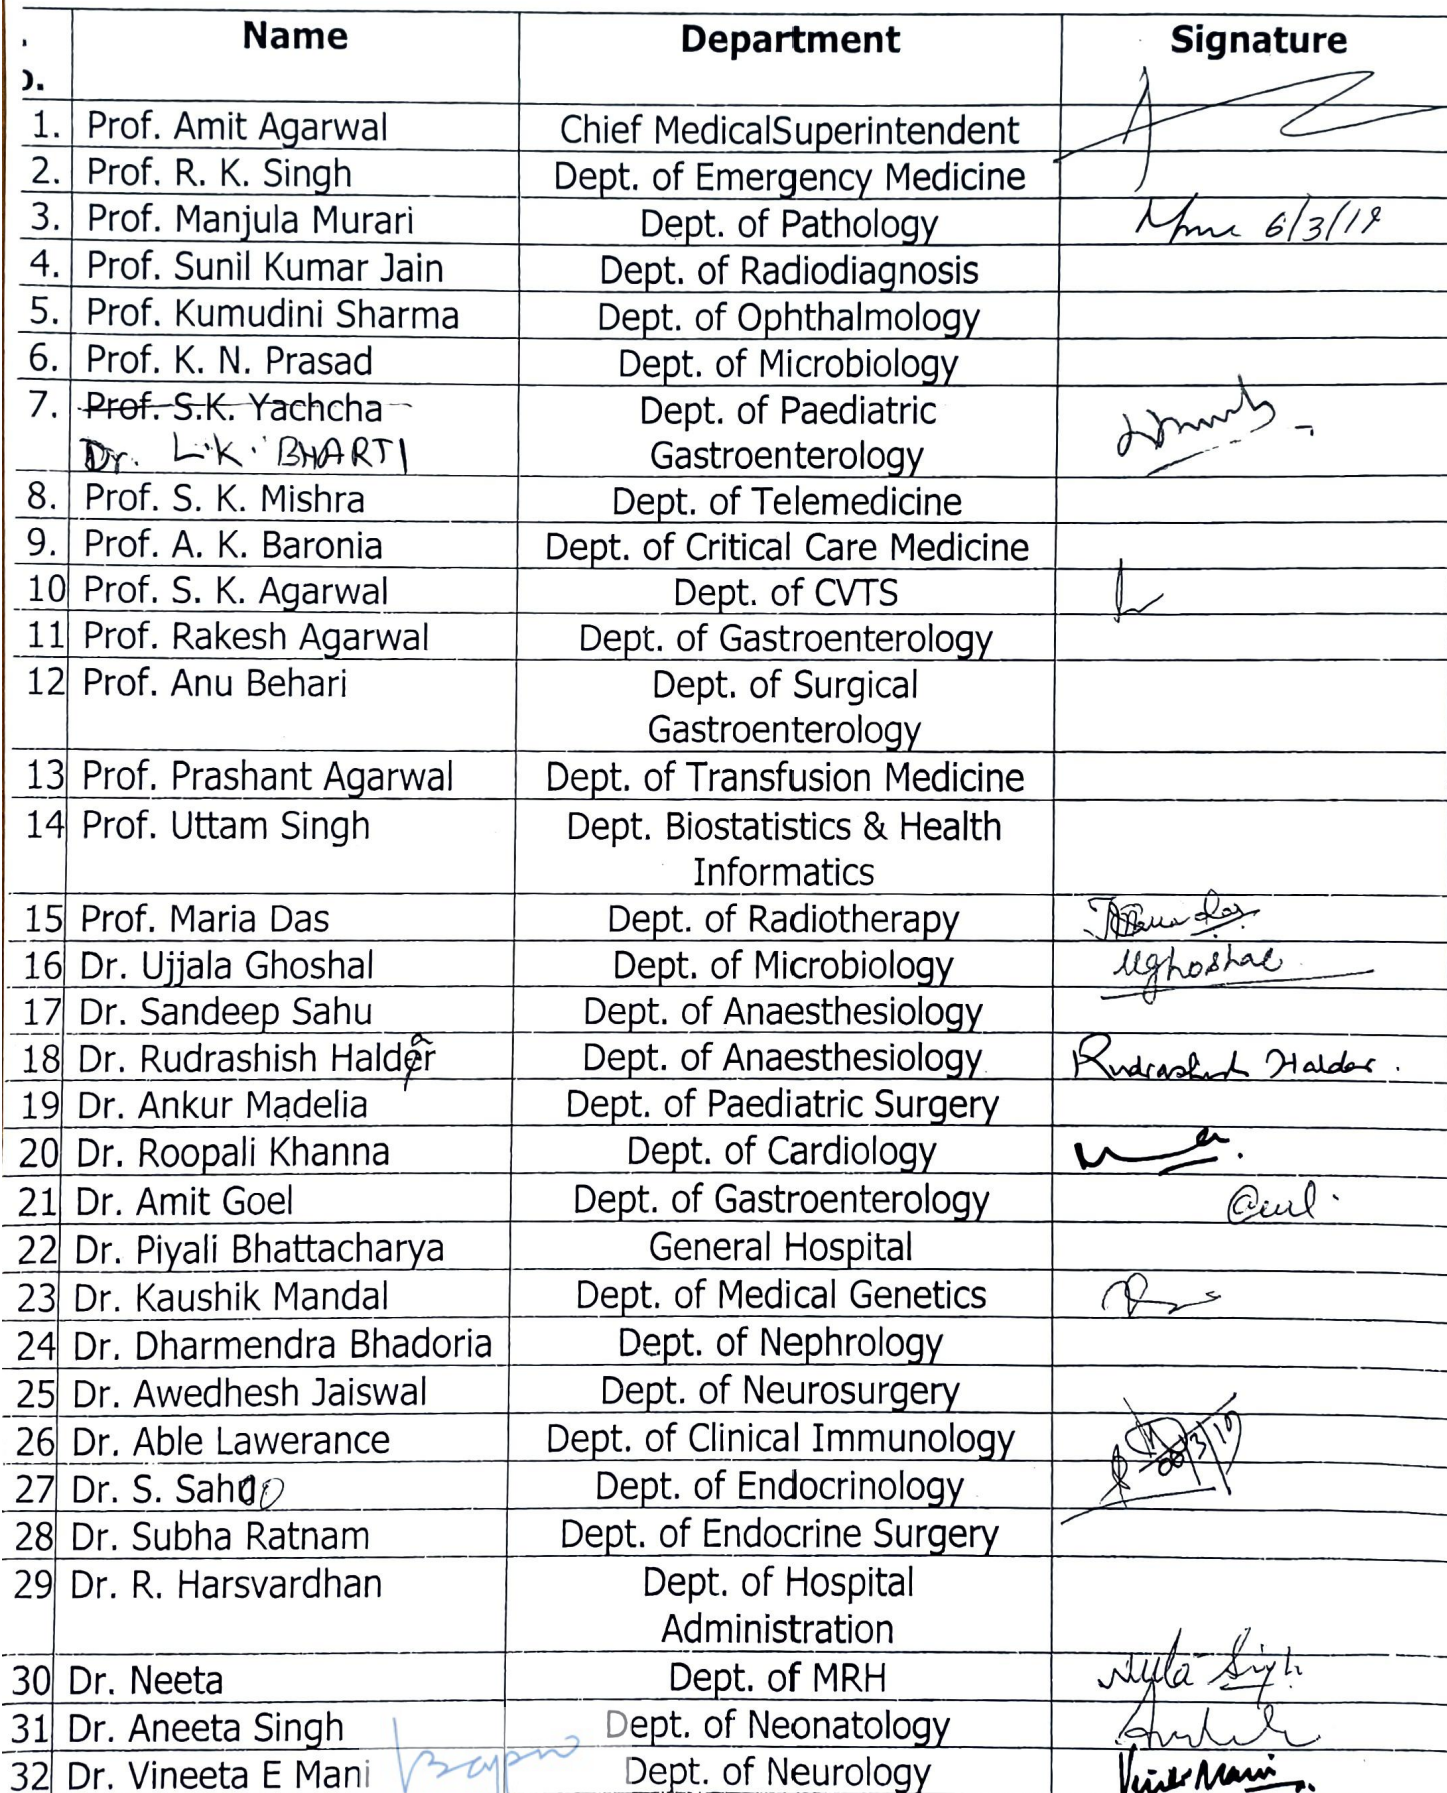 Name Department Signature
.
o.
1. Prof. Amit Agarwal Chief MedicalSuperintendent
2. Prof. R. K. Singh Dept. of Emergency Medicine
3. Prof. Manjula Murari Dept. of Pathology 6/3/19
4. Prof. Sunil Kumar Jain Dept. of Radiodiagnosis
5. Prof. Kumudini Sharma Dept. of Ophthalmology
6. Prof. K. N. Prasad Dept. of Microbiology
7. Prof. S.K. Yachcha Dept. of Paediatric
Dr. L.K. BHARTI Gastroenterology
8. Prof. S. K. Mishra Dept. of Telemedicine
9. Prof. A. K. Baronia Dept. of Critical Care Medicine
10 Prof. S. K. Agarwal Dept. of CVTS
11 Prof. Rakesh Agarwal Dept. of Gastroenterology
12 Prof. Anu Behari Dept. of Surgical
Gastroenterology
13 Prof. Prashant Agarwal Dept. of Transfusion Medicine
14 Prof. Uttam Singh Dept. Biostatistics & Health
Informatics
15 Prof. Maria Das Dept. of Radiotherapy Maria Das
16 Dr. Ujjala Ghoshal Dept. of Microbiology Ughoshal
17 Dr. Sandeep Sahu Dept. of Anaesthesiology
18 Dr. Rudrashish Haldar Dept. of Anaesthesiology Rudrashish Haldar.
19 Dr. Ankur Madelia Dept. of Paediatric Surgery
20 Dr. Roopali Khanna Dept. of Cardiology
21 Dr. Amit Goel Dept. of Gastroenterology
22 Dr. Piyali Bhattacharya General Hospital
23 Dr. Kaushik Mandal Dept. of Medical Genetics
24 Dr. Dharmendra Bhadoria Dept. of Nephrology
25 Dr. Awedhesh Jaiswal Dept. of Neurosurgery
26 Dr. Able Lawerance Dept. of Clinical Immunology
27 Dr. S. Sahoo Dept. of Endocrinology
28 Dr. Subha Ratnam Dept. of Endocrine Surgery
29 Dr. R. Harsvardhan Dept. of Hospital
Administration
30 Dr. Neeta Dept. of MRH Neeta Singh
31 Dr. Aneeta Singh Dept. of Neonatology
32 Dr. Vineeta E Mani Dept. of Neurology Vineeta Mani